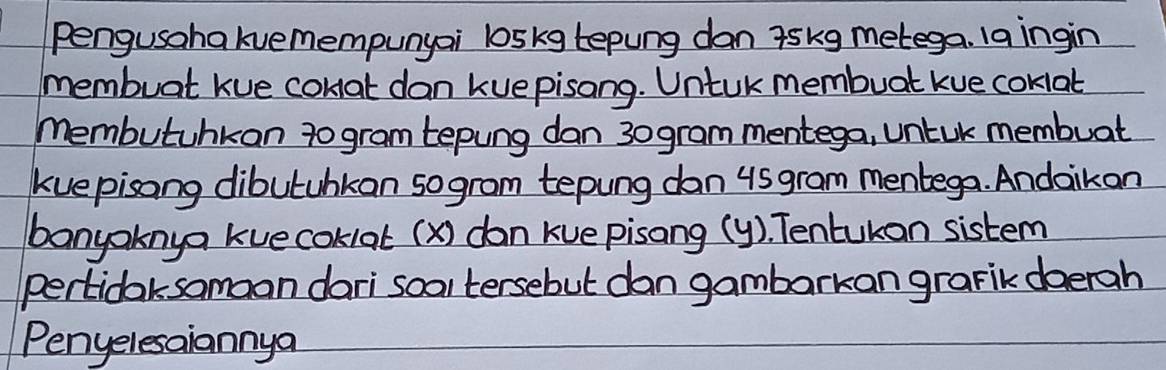 Pengusaha kue mempunyai 105kg tepung dan 75kg metega. Ia ingin
membuat kue coklat dan kue pisang. Untuk membuat kue coklat
Membutuhkan 70 gram tepung dan 30 gram mentega, untuk membuat
kue pisang dibutuhkan 50 gram tepung dan 45 gram mentega. Andaikan
banyaknya kue coklat (x) dan kue pisang (y). Tentukan sistem
pertidaksamaan dari soal tersebut dan gambarkan grafik daerah
Penyelesaiannya